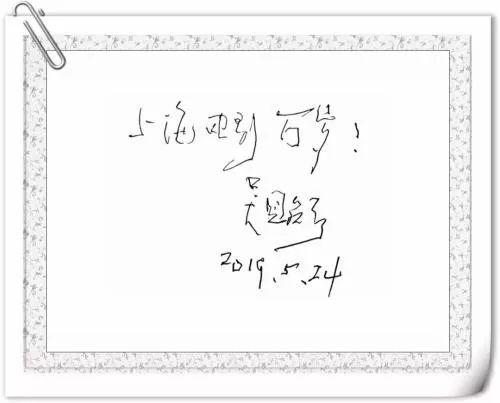 上海电影万岁!
吴贻弓
2019.5.24